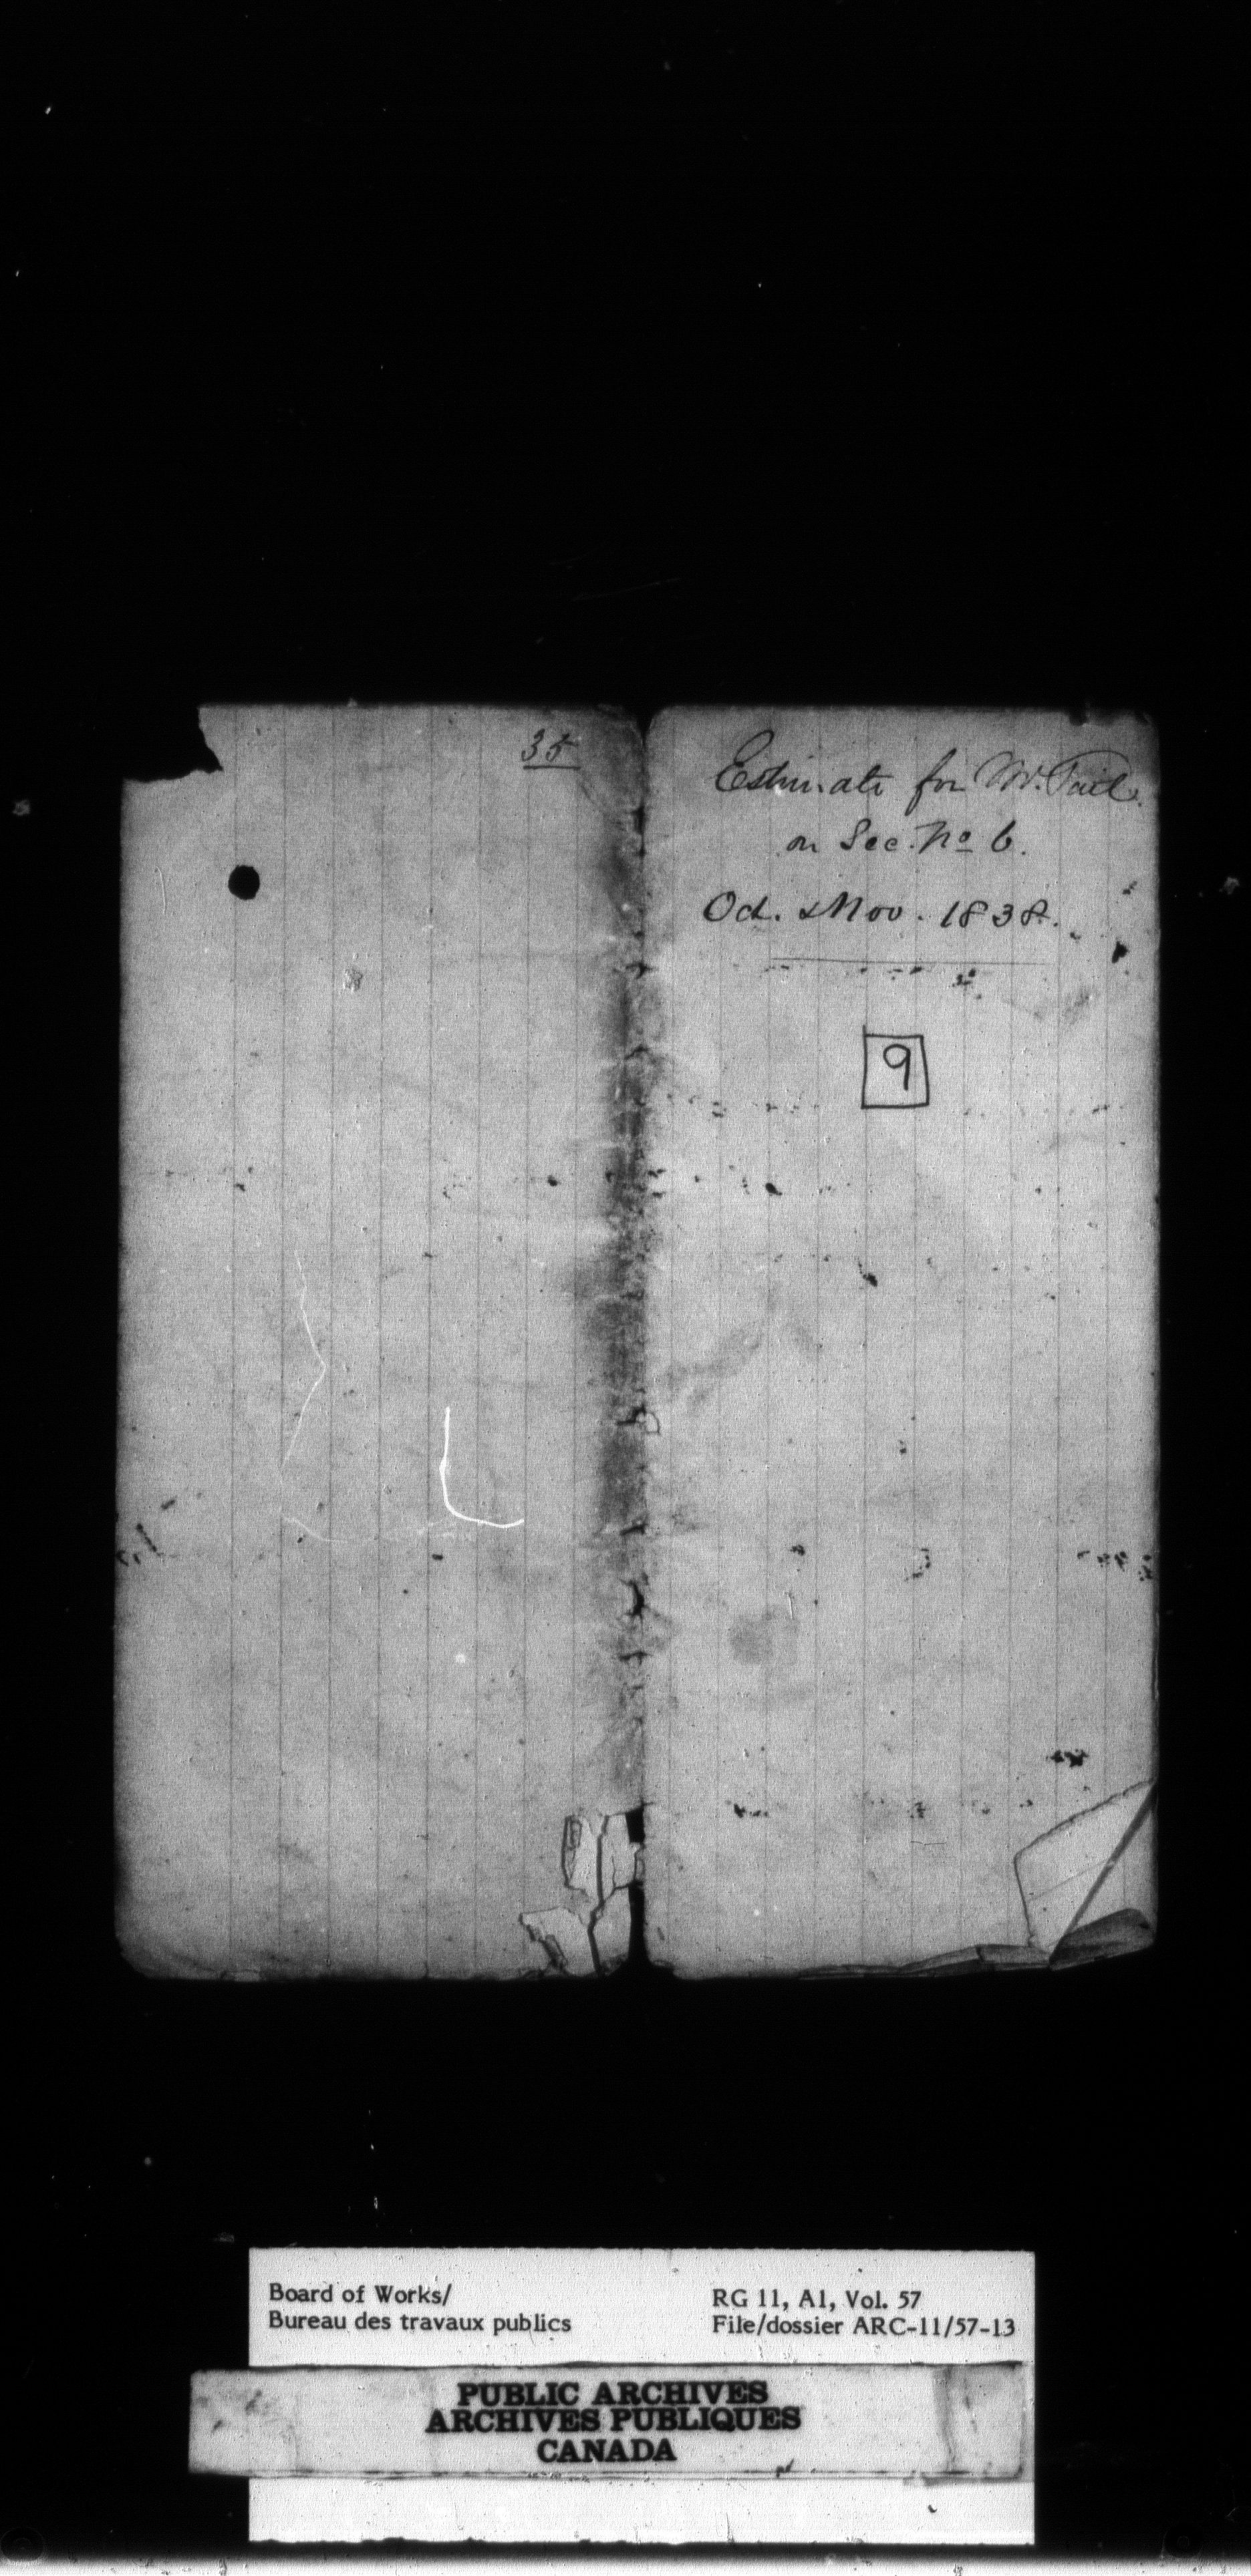 35
Estimate for W. Tail
on Sec. No 6.
Oct. & Nov. 1838.
9
Board of Works/
Bureau des travaux publics
RG 11, A1, Vol. 57
File/dossier ARC-11/57-13
PUBLIC ARCHIVES
ARCHIVES PUBLIQUES
CANADA